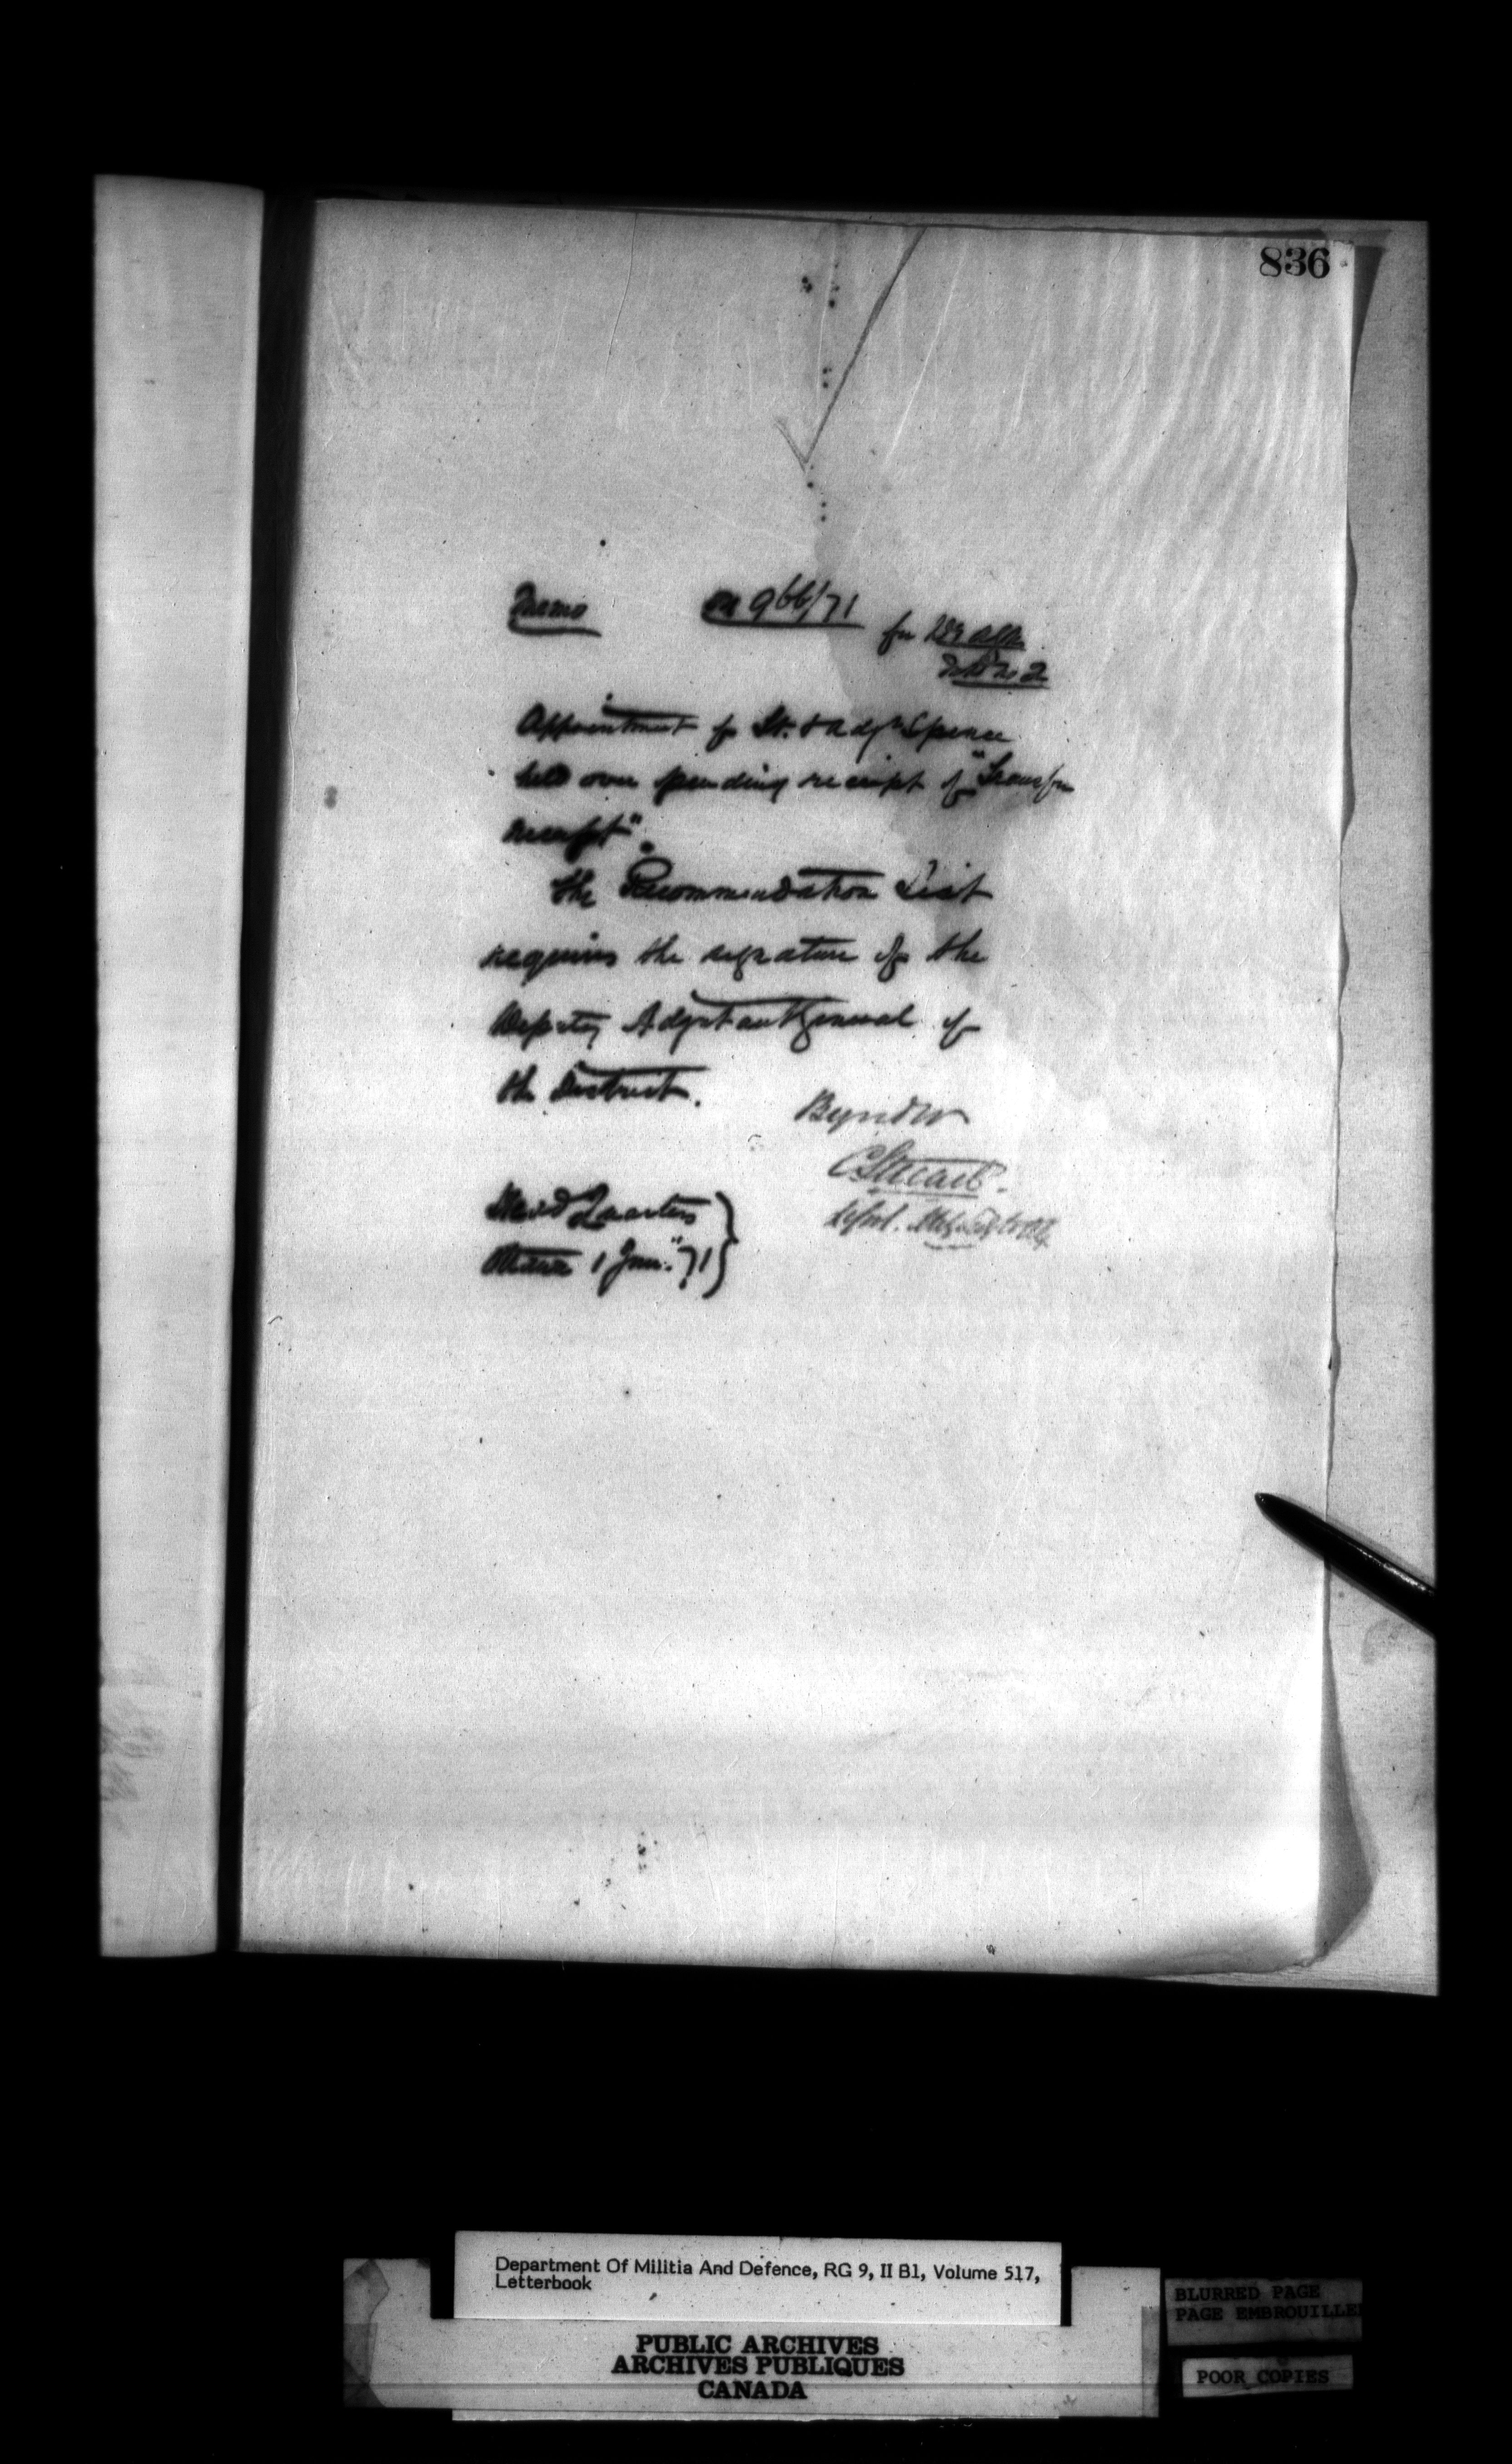 836
Memo
966/71
for
No 2
Appointment of Lt. & Adjt Spence
held over pending receipt of "Transfer
receipt".
The Recommendation List
requires the signature of the
Deputy Adjutant General of
the District.
By order
C Stuart.
Head Quarters
Ottawa 1 '71
Department Of Militia And Defence, RG 9, II B1, Volume 517,
Letterbook
PUBLIC ARCHIVES
ARCHIVES PUBLIQUES
CANADA
BLURRED PAGE
PAGE EMBROUILLE
POOR COPIES